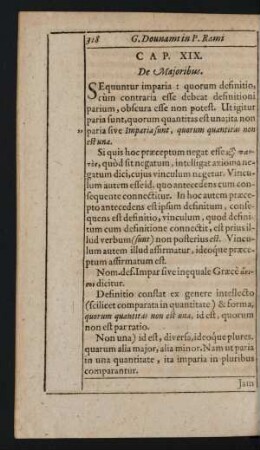 318 G. Dounami in P. Rami
CAP. XIX.
De Majoribus.
SEquuntur imparia : quorum definitio,
cùm contraria esse debeat definitioni
parium, obscura esse non potest. Ut igitur
paria sunt, quorum quantitas est una, ita non
paria sive Imparia sunt, quorum quantitas non
est una.
Si quis hoc præceptum negat esse
quòd sit negatum, intelligat axioma ne-
gatum dici, cujus vinculum negetur. Vincu-
lum autem esse id, quo antecedens cum con-
sequente connectitur. In hoc autem præ-
cepto antecedens est ipsum definitum, conse-
quens est definitio, vinculum, quod defini-
tum cum definitione connectit, est prius il-
lud verbum (sunt) non posterius est. Vincu-
lum autem illud affirmatur, ideoque præce-
ptum affirmatum est.
Nom. def. Impar sive inequale Græcè
dicitur.
Definitio constat ex genere intellecto
(scilicet comparata in quantitate) & forma,
quorum quantitas non est una, id est, quorum
non est par ratio.
Non una) id est, diversa, ideoque plures,
quarum alia major, alia minor. Nam ut paria
in una quantitate, ita imparia in pluribus
comparantur.
Jam